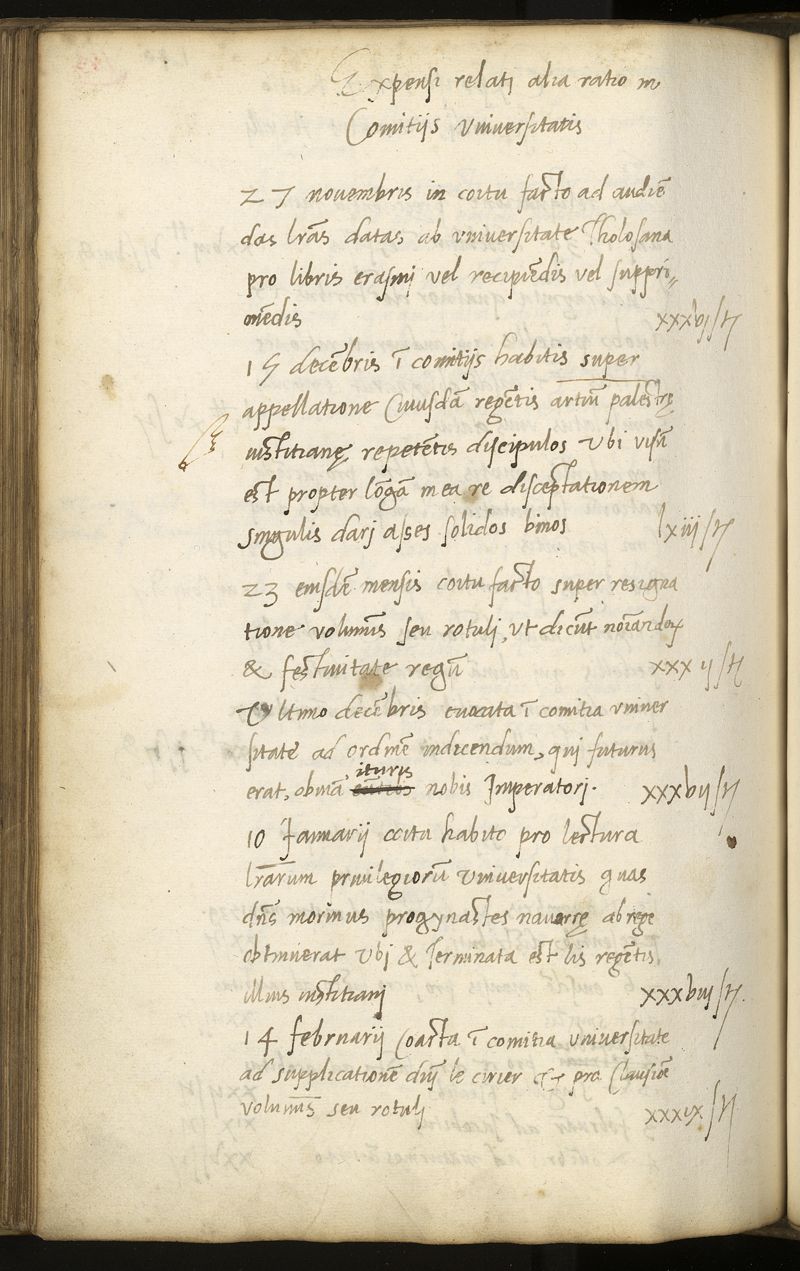 Expensi relati alia ratio in
Comitijs Vniuersitatis
27 nouembris in coitu facto ad audiē
das lr̄as datas ab vniuersitate Tholosana
pro libris erasmj vel recipiēdis vel suppri„
mēdis xxxvj st
15 decēbris ī comitijs habitis super
appellatione Cuiusdā regētis artiū palestrę
iustitianę repetētis discipulos Vbi visū
est propter lōgā mea re disceptationem
singulis darj asses solidos binos lxiij st
23 eiusdē mensis coitu facto super resigna
tione voluminis seu rotulj, vt dicūt
& festiuitate regū xxxij st
Vltimo decēbris euocata ī comitia vniuer
sitate ad ordinē indicendum, quj futurus
erat, obuiā ituris nobis Imperatorj. xxxvij st
10 Januarij coitu habito pro lectura
lr̄arum priuilegiorū Vniuersitatis quas
dn̄s morinus progynastes nauarrę ab rege
obtinuerat Vbj & Terminata est lis regētis
illius iustitianj xxxviij st.
14 februarij Coacta ī comitia vniuersitate
ad supplicationē dn̄j le cirier & pro Clausiōe
voluminis seu rotulj xxxix st